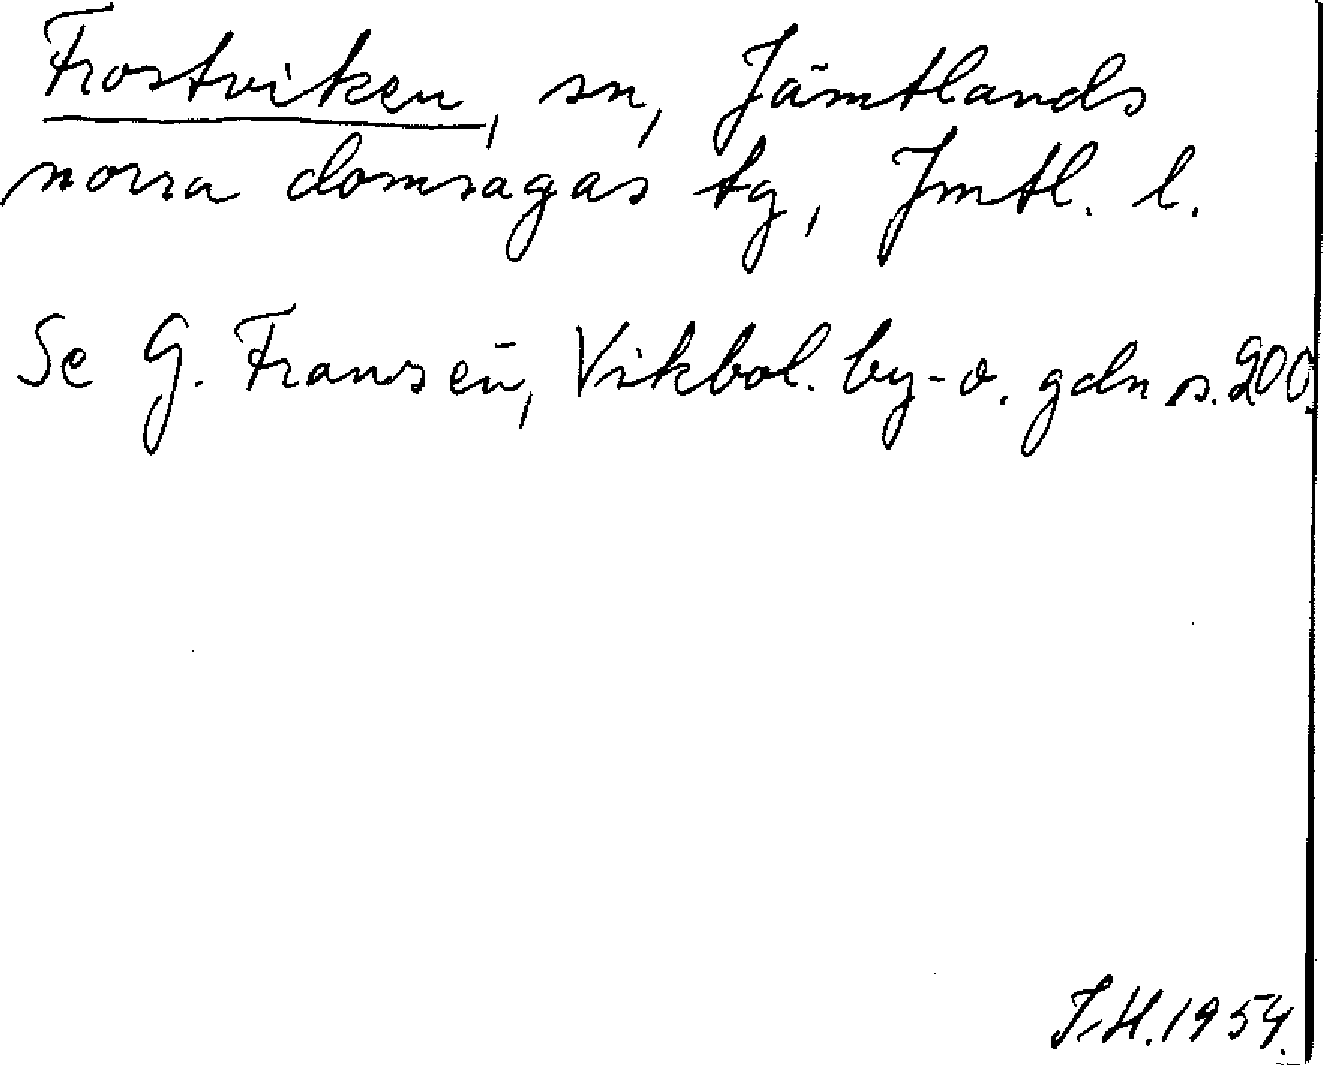 Frostviken, sn, Jämtlands
norra domsagas tg, Jmtl. l.
Se G. Fransén, Vikbol. by- o. gdn s. 200.
I-H. 1954.